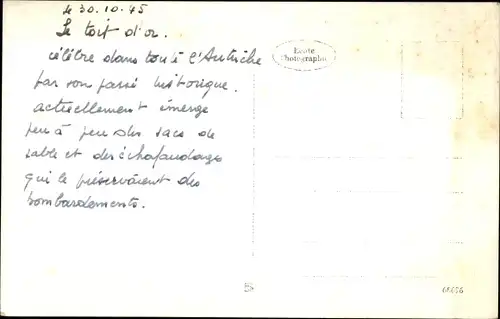 le 30.10.45
Le toit d'or.
célèbre dans toute l'Autriche
par son passé historique.
actuellement émerge
peu à peu des sacs de
sable et des échafaudages
qui le préservaient des
bombardements.
Echte
Photographie